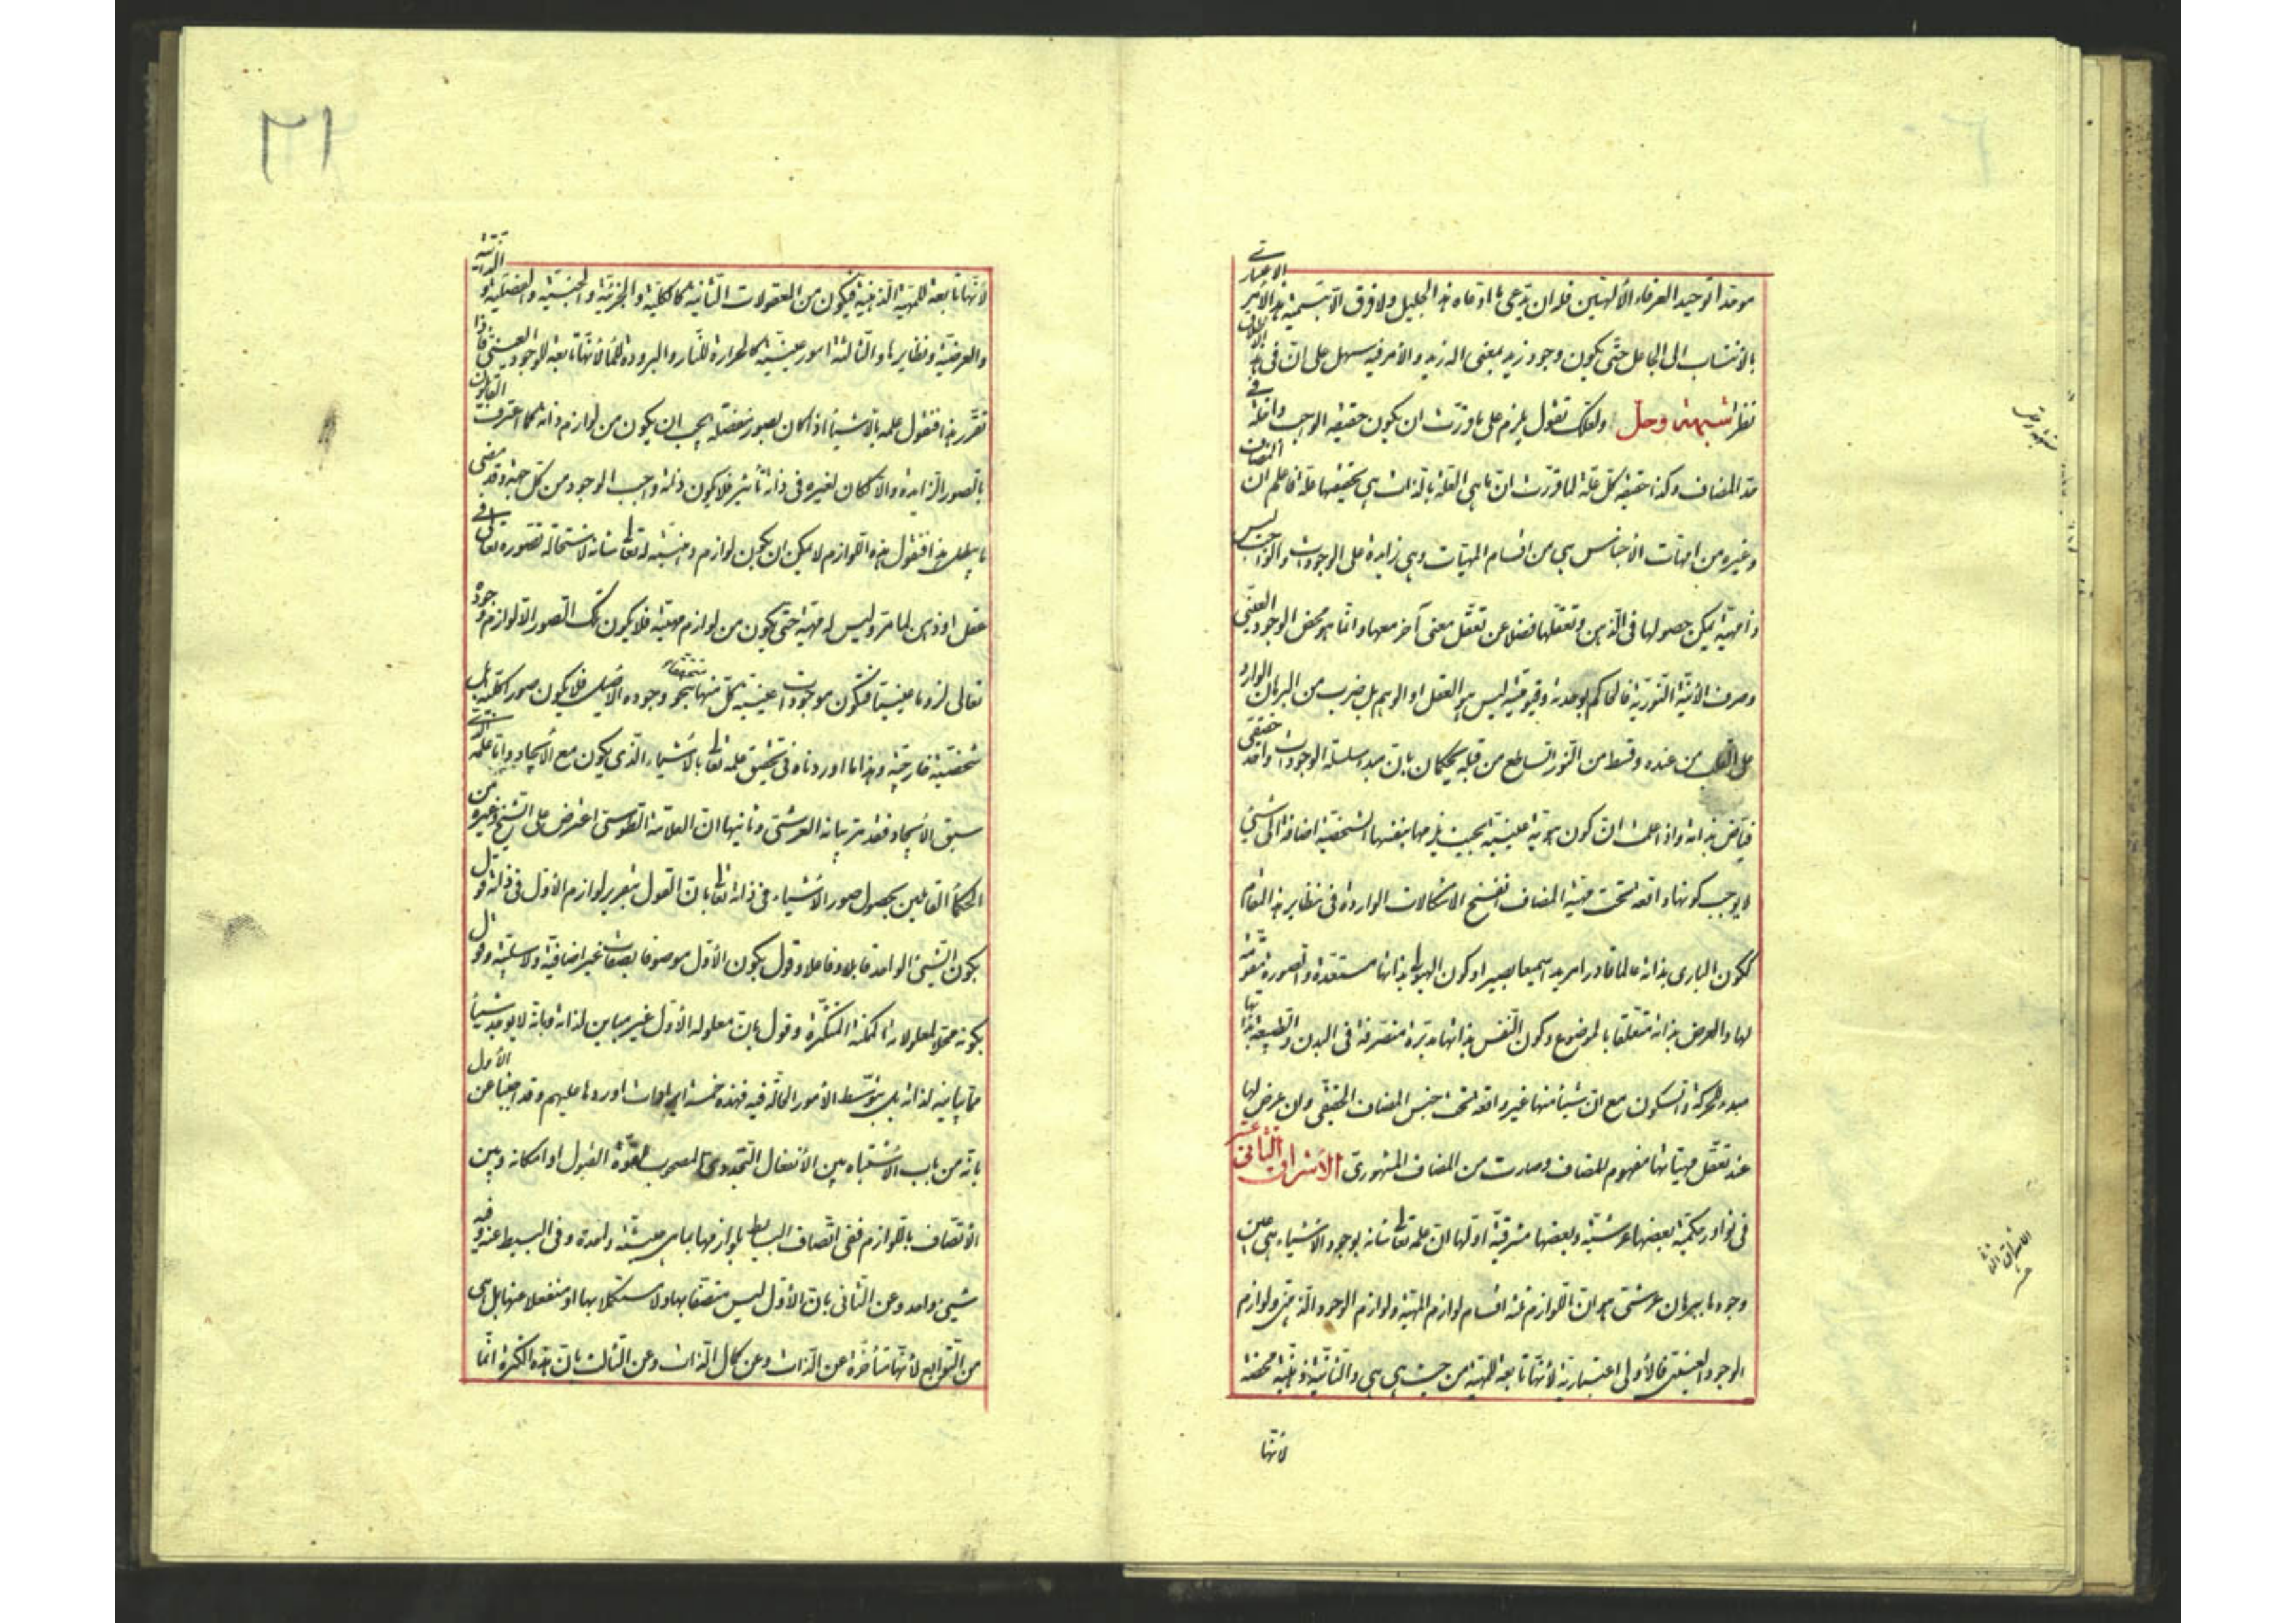 موحدا توحيد العرفاء الألهيين فله ان يدعى ما ادعاه هذا الجليل ولا فرق الا بتسمية هذا الأمر الاعتبارى
بالانتساب الى الجاعل حتى يكون وجود زيد بمعنى اله زيد والأمر فيه سهل على ان فى هذا الاطلاق
نظرا شبهة وحل ولعلك تقول يلزم على ما قررت ان يكون حقيقة الواجب داخلة فى
حد المضاف وكذا حقيقة كل علة لما قررت ان ما هى العلة بالذات هى بحقيقتها علة فاعلم ان المضاف
وغيره من امهات الأجناس هى من اقسام المهيات وهى زايدة على الوجودات والواجب ليس
ذا مهية يمكن حصولها فى الذهن وتعقلها فضلا عن تعقل معنى آخر معها وانما هو محض الوجود العينى
وصرف الأنية النورية فالحاكم بوحدته وقيوميته ليس هو العقل او الوهم بل ضرب من البرهان الوارد
على القلب من عنده وقسط من النور الساطع من قبله يحكمان بان مبدء سلسلة الوجودات واحد حقيقى
فياض بذاته واذا علمت ان كون هوية عينية بحيث يلزمها بنفسها الشخصية اضافة الى شىء
لا يوجب كونها واقعة تحت مهية المضاف انفسخ الاشكالات الواردة فى نظاير هذا المقام
ككون البارى بذاته عالما قادرا مريدا سميعا بصيرا وكون الهيولى بذاتها مستعدة والصورة مقومة
لها والعرض بذاته متعلقا بالموضوع وكون النفس بذاتها مدبرة متصرفة فى البدن والطبيعة بذاتها
مبدء للحركة والسكون مع ان شيئا منها غير واقعة تحت جنس المضاف الحقيقى وان عرض لها
عند تعقل مهياتها مفهوم للمضاف وصارت من المضاف المشهورى الأشراق الثانى عشر
فى نوادر حكمية بعضها عرشية وبعضها مشرقية اولها ان علمه تعالى شانه بوجود الاشياء هى عين
وجودها ببرهان عرشى هو ان اللوازم ثلثة اقسام لوازم المهية ولوازم الوجود الذهنى ولوازم
الوجود العينى فالأولى اعتبارية لأنها تابعة للمهية من حيث هى هى والثانية ذهنية محضة
لأنها
شبهة وحل
الأشراق الثانى عشر
٢١
لأنها تابعة للمهية الذهنية فيكون من المعقولات الثانية كالكلية والجزئية والجنسية والفصلية والذاتية
والعرضية ونظايرها والثالثة امور عينية كالحرارة للنار والبرودة للماء لأنها تابعة للوجود العينى فاذا
تقرر هذا فنقول علمه بالأشياء اذا كان بصور مفصلة يجب ان يكون من لوازم ذاته كما اعترف القايلون
بالصور الزايدة والا لكان لغيره فى ذاته تأثير فلا يكون ذاته واجب الوجود من كل جهة وقد مضى
ما يبطل هذا فنقول هذه اللوازم لا يمكن ان يكون لوازم ذهنية له تعالى شانه لاستحالة تصوره تعالى فى
عقل او ذهن لما مر وليس له مهية حتى يكون من لوازم مهيته فلا يكون تلك الصور الا لوازم وجوده
تعالى لزوما عينيا فتكون موجودات عينية متحققا كل منها بنحو وجوده الأصيل فلا يكون صورا كلية بل
شخصية خارجية وهذا ما اوردناه فى تحقيق علمه تعالى بالأشياء الذى يكون مع الأيجاد واما علمه الذى
سبق الأيجاد فقد مر بيانه العرشى وثانيها ان العلامة الطوسى اعترض على الشيخ وغيره من
الحكماء القايلين بحصول صور الأشياء فى ذاته تعالى بان القول بتقرير لوازم الأول فى ذاته قول
بكون الشىء الواحد قابلا وفاعلا وقول بكون الأول موصوفا بصفات غير اضافية ولا سلبية وقول
بكونه محلا لمعلولاته الممكنة المتكثرة وقول بان معلوله الأول غير مباين لذاته وبانه لا يوجد شيئا
مما يباينه لذاته بل بتوسط الأمور الحالة فيه فهذه خمسة ايرادات اوردها عليهم وقد اجبنا عن الأول
بانه من باب الأشتباه بين الأنفعال التجددى المصحوب لقوة القبول او امكانه وبين
الأتصاف باللوازم ففى اتصاف البسايط بلوازمها بما هى حيثية واحدة وفى البسيط عنه وفيه
شىء واحد وعن الثانى بان الأول ليس متصفا بها ولا مستكملا بها او منفعلا عنها بل هى
من التوابع لأنها متأخرة عن الذات وعن كمال الذات وعن الثالث بان هذه الكثرة انما